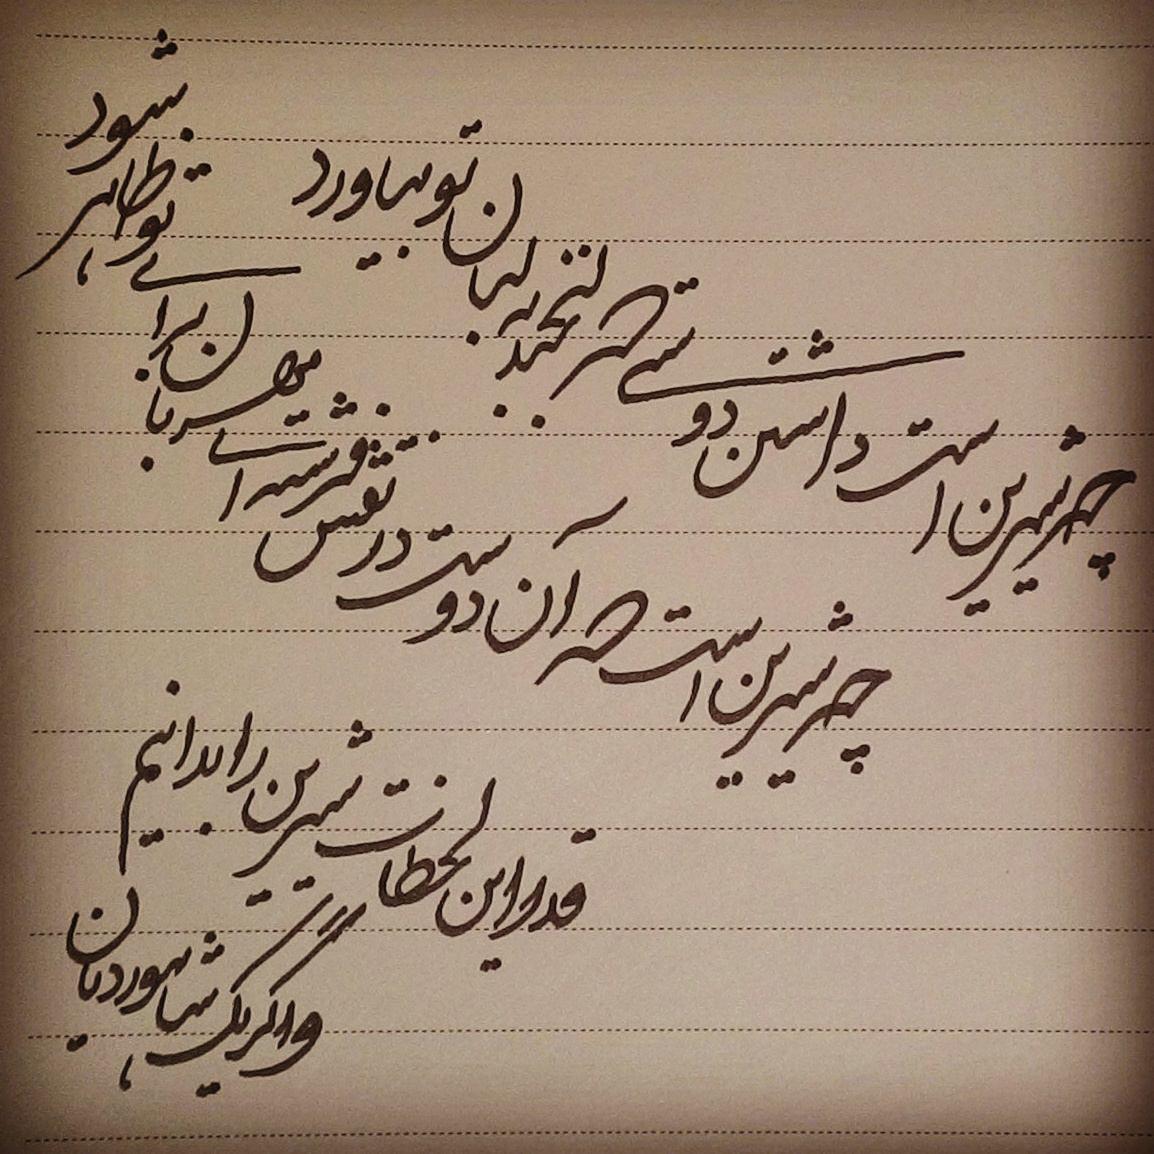 چه شیرین است داشتن دوستی که لبخند به لبان تو بیاورد
چه شیرین است که آن دوست در نقش فرشته ای مهربان برای تو ظاهر شود
قدر این لحظات شیرین را بدانیم
و اگر یک شاهوردیان